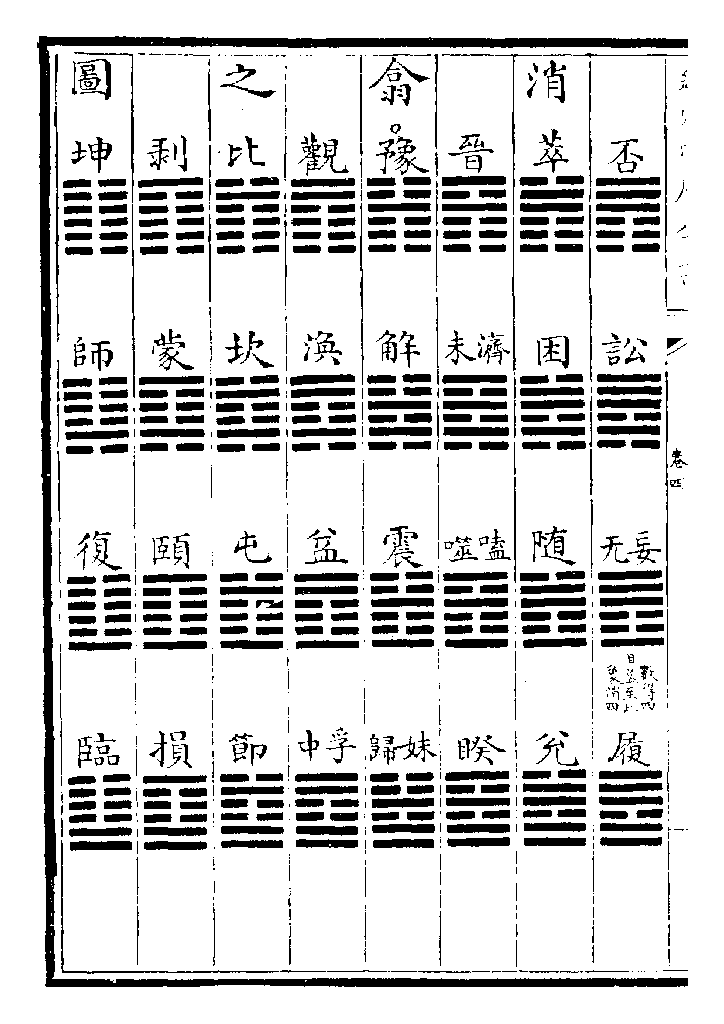 消翕之圖
否 萃 晉 豫 觀 比 剥 坤
訟 困 未濟 解 渙 坎 蒙 師
无妄 随 噬嗑 震 益 屯 頤 復
履 兊 睽 歸妹 中孚 節 損 臨
卷四